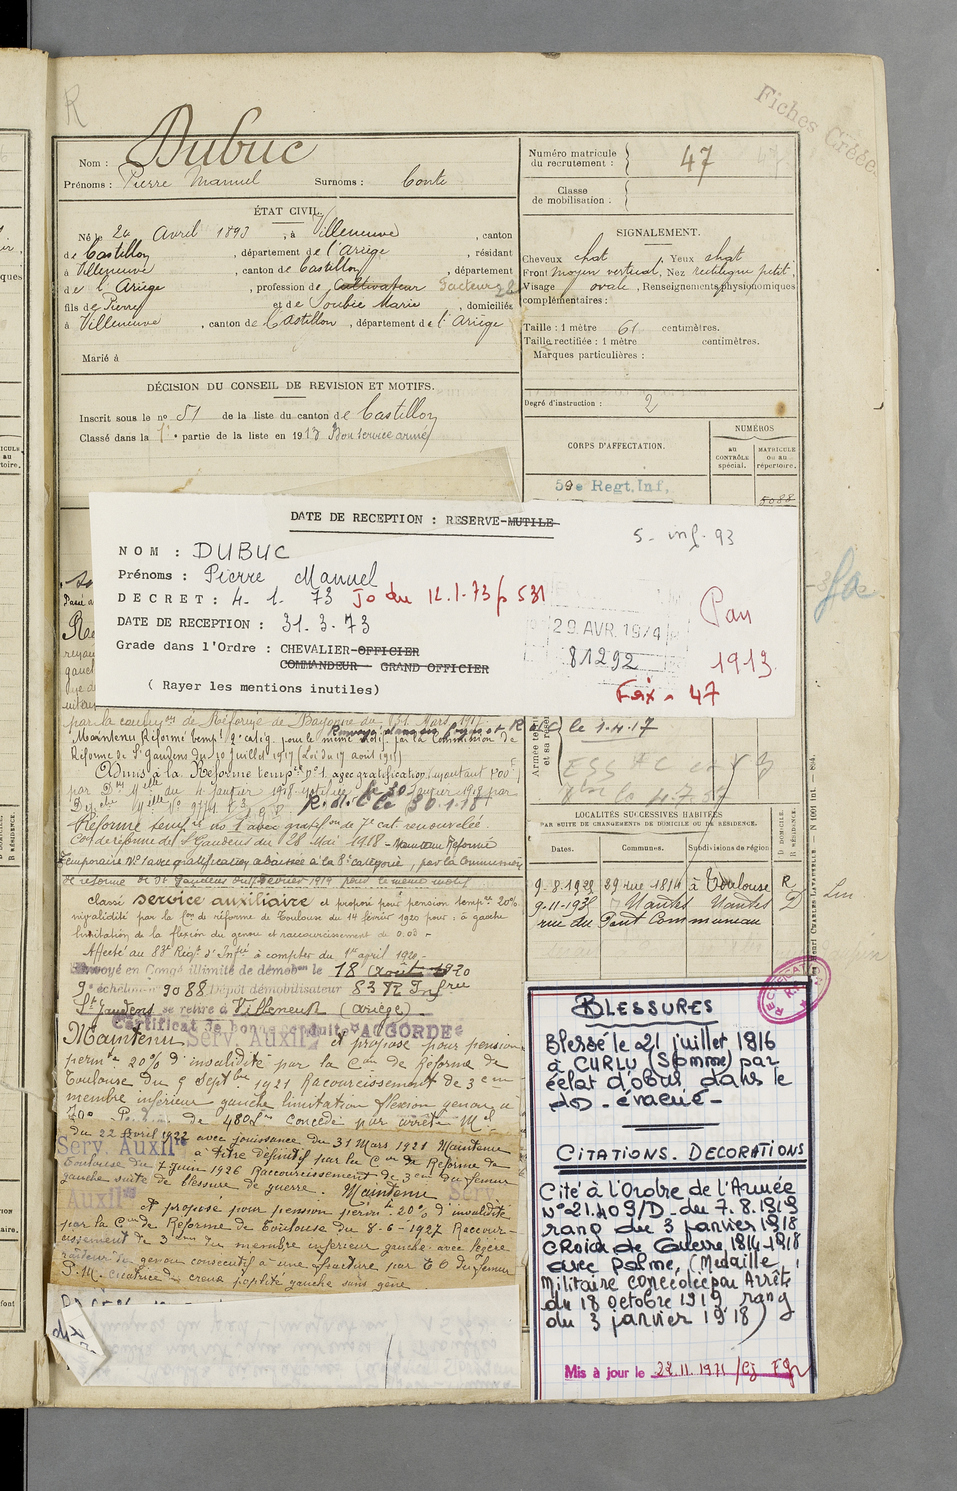 R
Fiches Créées
Nom : Dubuc
Prénoms : Pierre Manuel Surnoms : Conte
Numéro matricule du recrutement : 47
Classe de mobilisation :
ÉTAT CIVIL.
Né le 24 Avril 1893, à Villeneuve, canton
de Castillon, département de l'Ariège, résidant
à Villeneuve, canton de Castillon, département
de l'Ariège, profession de Cultivateur Facteur
fils de Pierre et de Soubie Marie, domiciliés
à Villeneuve, canton de Castillon, département de l'Ariège
Marié à
SIGNALEMENT.
Cheveux chat, Yeux chat
Front moyen vertical, Nez rectiligne petit,
Visage ovale, Renseignements physionomiques
complémentaires :
Taille : 1 mètre 61 centimètres.
Taille rectifiée : 1 mètre centimètres.
Marques particulières :
DÉCISION DU CONSEIL DE REVISION ET MOTIFS.
Inscrit sous le no 51 de la liste du canton de Castillon
Classé dans la 1e partie de la liste en 1913 Bon service armé
Degré d'instruction : 2
CORPS D'AFFECTATION.
NUMÉROS
au CONTRÔLE spécial.
MATRICULE ou au répertoire.
59e Regt. Inf.
5088
DATE DE RECEPTION : RESERVE-MUTILE
S. inf. 93
NOM : DUBUC
Prénoms : Pierre Manuel
DECRET : 4. 1. 73 Jo du 12.1.73 p 531
DATE DE RECEPTION : 31.3.73
Grade dans l'Ordre : CHEVALIER-OFFICIER
COMMANDEUR - GRAND OFFICIER
( Rayer les mentions inutiles)
29 AVR. 1974
81292
Pau
1913
Faix - 47
par la common de Réforme de Bayonne du 31 Mars 1917
Maintenu Réformé tempre 2e catég. pour le même motif par la Commission de
Réforme de St Gaudens du 30 Juillet 1917 (Loi du 17 août 1915)
le 1.4.17
Admis à la Réforme tempre no 1, avec gratification
R. d. C. le 30.1.18
Réforme tempre no 1 avec gratifon de 7e cat. renouvelée.
Con de réforme de St Gaudens du 28 Mai 1918 - Maintenu Réformé
Temporaire No 1 avec gratification abaissée à la 8e catégorie, par la Commission
de réforme de St Gaudens du 7 février 1919 pour le même motif
classé service auxiliaire et proposé pour pension tempre 20%
invalidité par la Con de réforme de Toulouse du 14 février 1920 pour : à gauche
limitation de la flexion du genou et raccourcissement de 0.03 -
Affecté au 83e Régt d'Infie à compter du 1er avril 1920 -
Envoyé en Congé illimité de démobon le 18 Août 1920
9e échelon no 9088 Dépôt démobilisateur 83 RI Infrie
St Gaudens se retire à Villeneuve (Ariège)
Certificat de bonne conduite "ACCORDÉ"
Maintenu Serv. Auxil et proposé pour pension
permte 20% d'invalidité par la Con de Réforme de
Toulouse du 9 Septbre 1921 Raccourcissement de 3 cm
membre inférieur gauche limitation flexion genou à
de 480f concédée par arrêté Mel
du 22 Avril 1922 avec jouissance du 31 Mars 1921 Maintenu
Serv. Auxil à titre définitif par la Con de Réforme de
Toulouse du 7 juin 1926 Raccourcissement de 3 cm du femur
gauche suite de blessure de guerre. Maintenu Serv.
Auxil et proposé pour pension permte 20% d'invalidité
par la Con de Réforme de Toulouse du 8-6-1927 Raccour-
cissement de 3 cm du membre inférieur gauche avec légère
raideur du genou consécutif à une fracture par E O du femur
P.M. cicatrice du creux poplité gauche sans gêne
LOCALITÉS SUCCESSIVES HABITÉES
PAR SUITE DE CHANGEMENTS DE DOMICILE OU DE RÉSIDENCE.
Dates. Communes. Subdivisions de région D DOMICILE. R RÉSIDENCE.
9.8.1928 29 rue 1814 à Toulouse R
9-11-1935 Nantes Nantes D
rue du Pont Communeau
BLESSURES
Blessé le 21 juillet 1916
à CURLU (Somme) par
éclat d'obus, dans le
dos - évacué -
CITATIONS. DECORATIONS
Cité à l'Ordre de l'Armée
N° 21.409/D - du 7.8.1919
rang du 3 janvier 1918
Croix de Guerre 1914-1918
avec Palme, (Médaille
Militaire concédée par Arrêté
du 18 octobre 1919, rang
du 3 janvier 1918)
Mis à jour le 22.11.1971